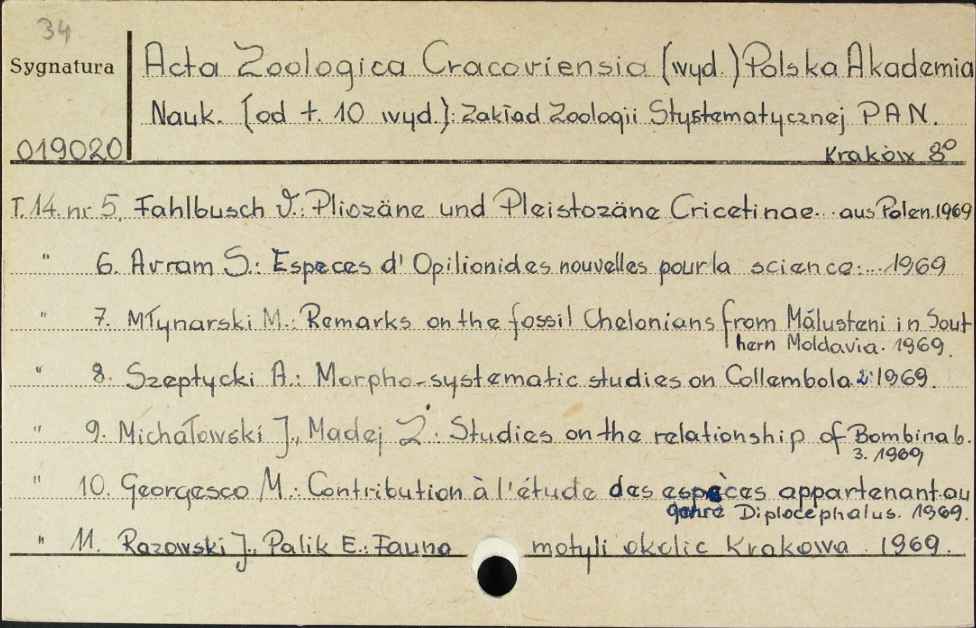 34
Sygnatura
Acta Zoologica Cracoviensia (wyd.) Polska Akademia
Nauk. [od t. 10 wyd.]: Zakład Zoologii Stystematycznej PAN.
019020
Kraków 8°
T. 14. nr 5. Fahlbusch V.: Pliozäne und Pleistozäne Cricetinae... aus Polen. 1969
" 6. Avram S.: Especes d' Opilionides nouvelles pour la science.... 1969
" 7. Młynarski M.: Remarks on the fossil Chelonians from Măluşteni in Sout-
hern Moldavia. 1969.
" 8. Szeptycki A.: Morpho-systematic studies on Collembola 2. 1969.
" 9. Michałowski J., Madej Z.: Studies on the relationship of Bombina b.
3. 1969
" 10. Georgesco M.: Contribution à l'étude des espèces appartenant au
genre Diplocephalus. 1969.
" 11. Razowski J., Palik E.: Fauna motyli okolic Krakowa. 1969.